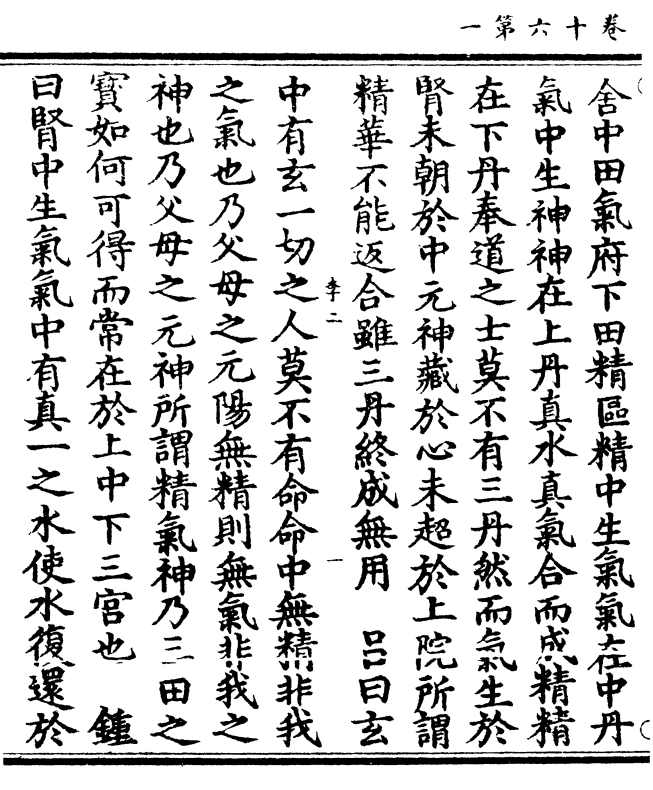 卷十六第一
舍中田氣府下田精區精中生氣氣在中丹
氣中生神神在上丹真水真氣合而成精精
在下丹奉道之士莫不有三丹然而氣生於
腎未朝於中元神藏於心未超於上院所謂
精華不能返合雖三丹終成無用　呂曰玄
李二　一
中有玄一切之人莫不有命命中無精非我
之氣也乃父母之元陽無精則無氣非我之
神也乃父母之元神所謂精氣神乃三田之
寶如何可得而常在於上中下三宮也　鍾
曰腎中生氣氣中有真一之水使水復還於